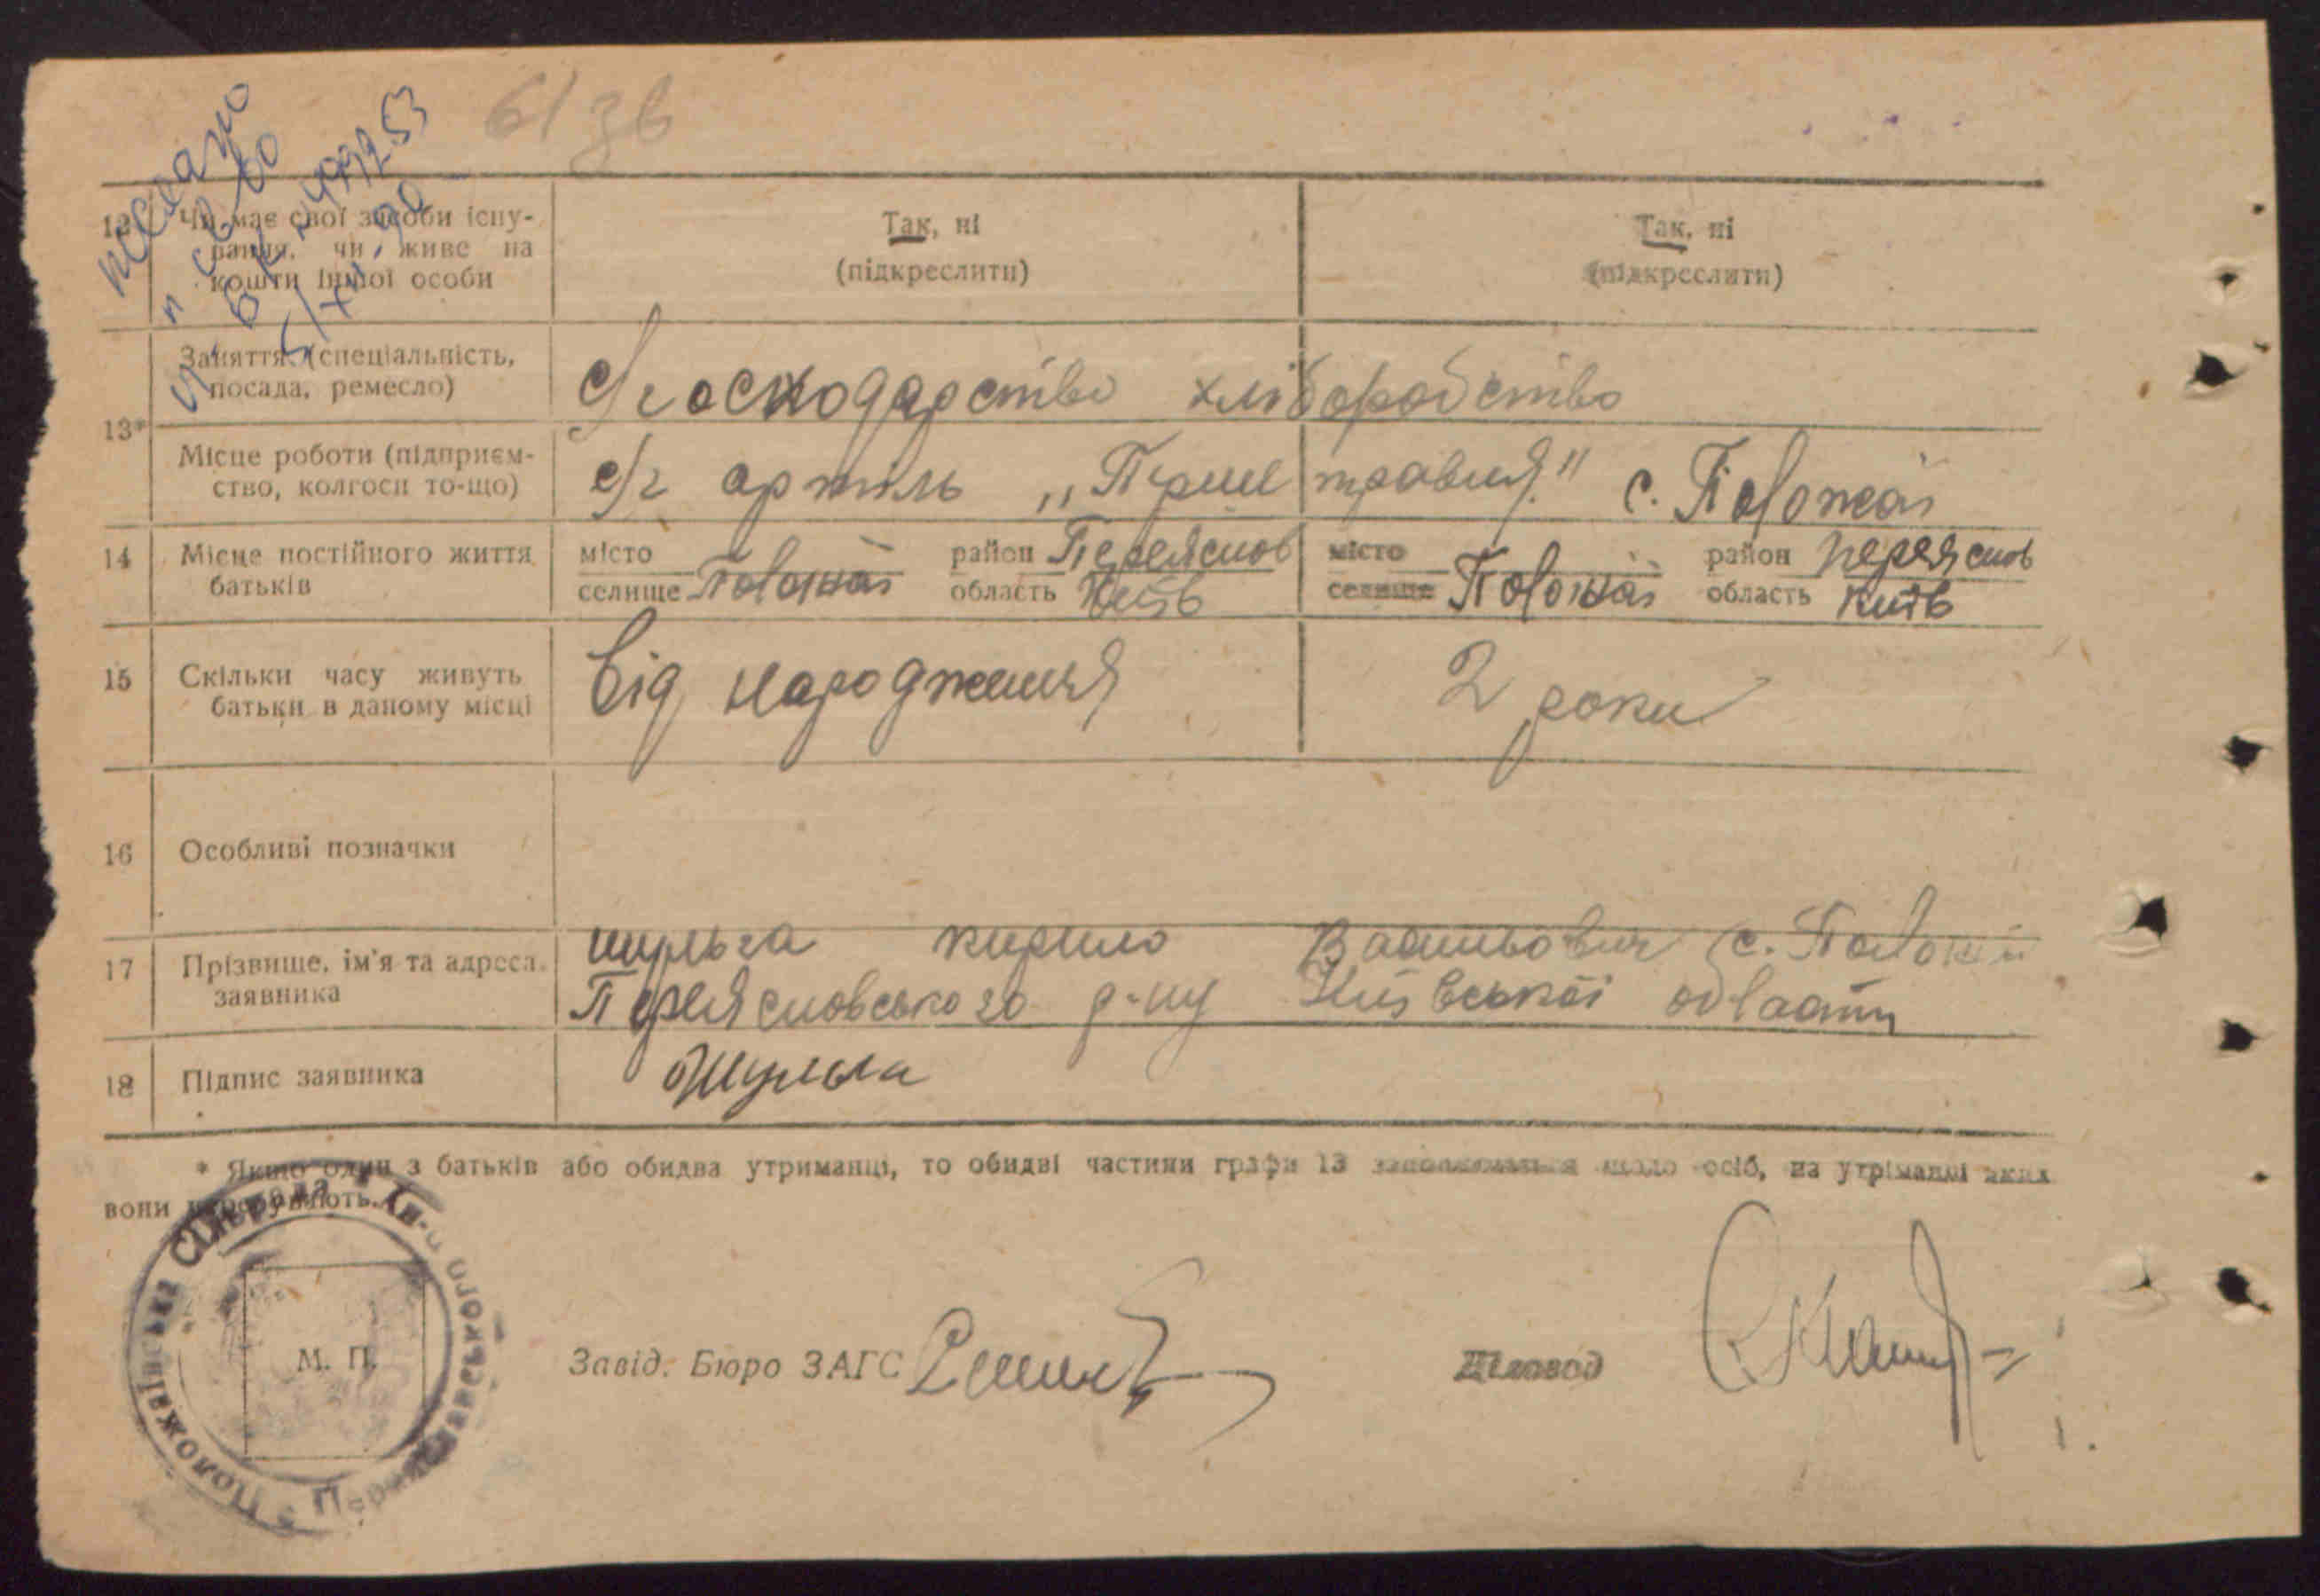 61 зв
12 Чи має свої засоби існування, чи живе на кошти іншої особи
Так, ні (підкреслити)
Так, ні (підкреслити)
13*
Заняття (спеціальність, посада, ремесло)
с/господарство хліборобство
Місце роботи (підприємство, колгосп то-що)
с/г артіль „Перше травня" с. Положаї
14 Місце постійного життя батьків
місто селище Положаї район Переяслов область Київ
місто селище Положаї район Переяслов область Київ
15 Скільки часу живуть батьки в даному місці
від народження
2 роки
16 Особливі позначки
17 Прізвище, ім'я та адреса заявника
шульга кирило Васильович с. Положаї
Переясловського р-ну Київської області
18 Підпис заявника
Шульга
* Якщо один з батьків або обидва утриманці, то обидві частини графи 13 заповнюються щодо осіб, на утріманні яких
вони перебувають.
М. П.
Завід. Бюро ЗАГС
Діловод